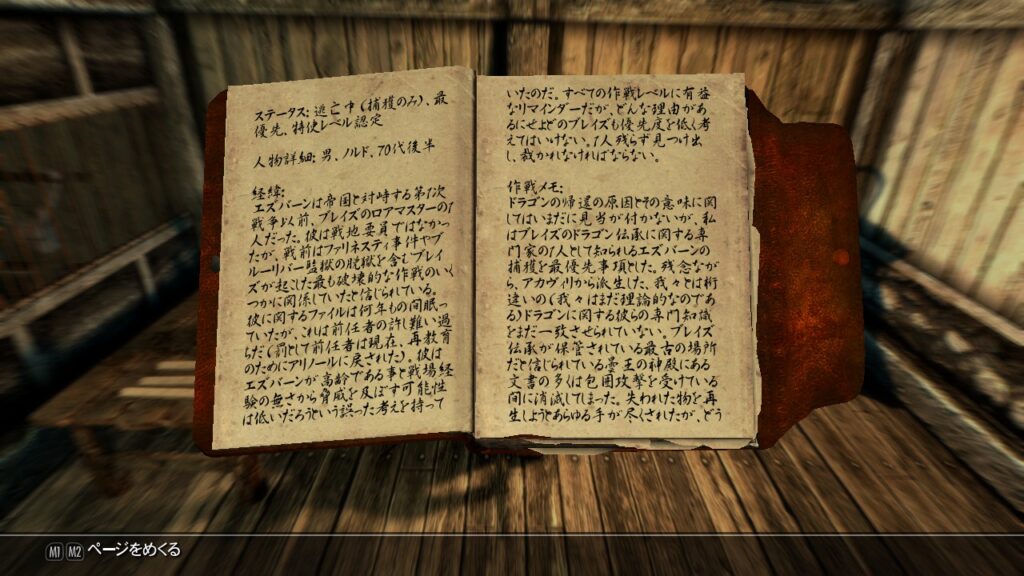 ステータス: 逃亡中(捕獲のみ)、最
優先、特使レベル認定
人物詳細: 男、ノルド、70代後半
経緯:
エズバーンは帝国と対峙する第1次
戦争以前、ブレイズのロアマスターの1
人だった。彼は戦地要員ではなかっ
たが、戦前はファリネスティ事件やブ
ルーリバー監獄の脱獄を含むブレイ
ズが起こした最も破壊的な作戦のいく
つかに関係していたと信じられている。
彼に関するファイルは何年もの間眠っ
ていたが、これは前任者の許し難い過
ちだ(罰として前任者は現在、再教育
のためにアリノールに戻された)。彼は
エズバーンが高齢である事と戦場経
験の無さから脅威を及ぼす可能性
は低いだろうという誤った考えを持って
いたのだ。すべての作戦レベルに有益
なリマインダーだが、どんな理由があ
るにせよどのブレイズも優先度を低く考
えてはいけない。1人残らず見つけ出
し、裁かれなければならない。
作戦メモ:
ドラゴンの帰還の原因とその意味に関
してはいまだに見当が付かないが、私
はブレイズのドラゴン伝承に関する専
門家の1人として知られるエズバーンの
捕獲を最優先事項とした。残念なが
ら、アカヴィリから派生した、我々とは桁
違いの(我々はまだ理論的なのであ
る)ドラゴンに関する彼らの専門知識
をまだ一致させられていない。ブレイズ
伝承が保管されている最古の場所
だと信じられている曇王の神殿にある
文書の多くは包囲攻撃を受けている
間に消滅してしまった。失われた物を再
生しようとあらゆる手が尽くされたが、どう
M1 M2 ページをめくる